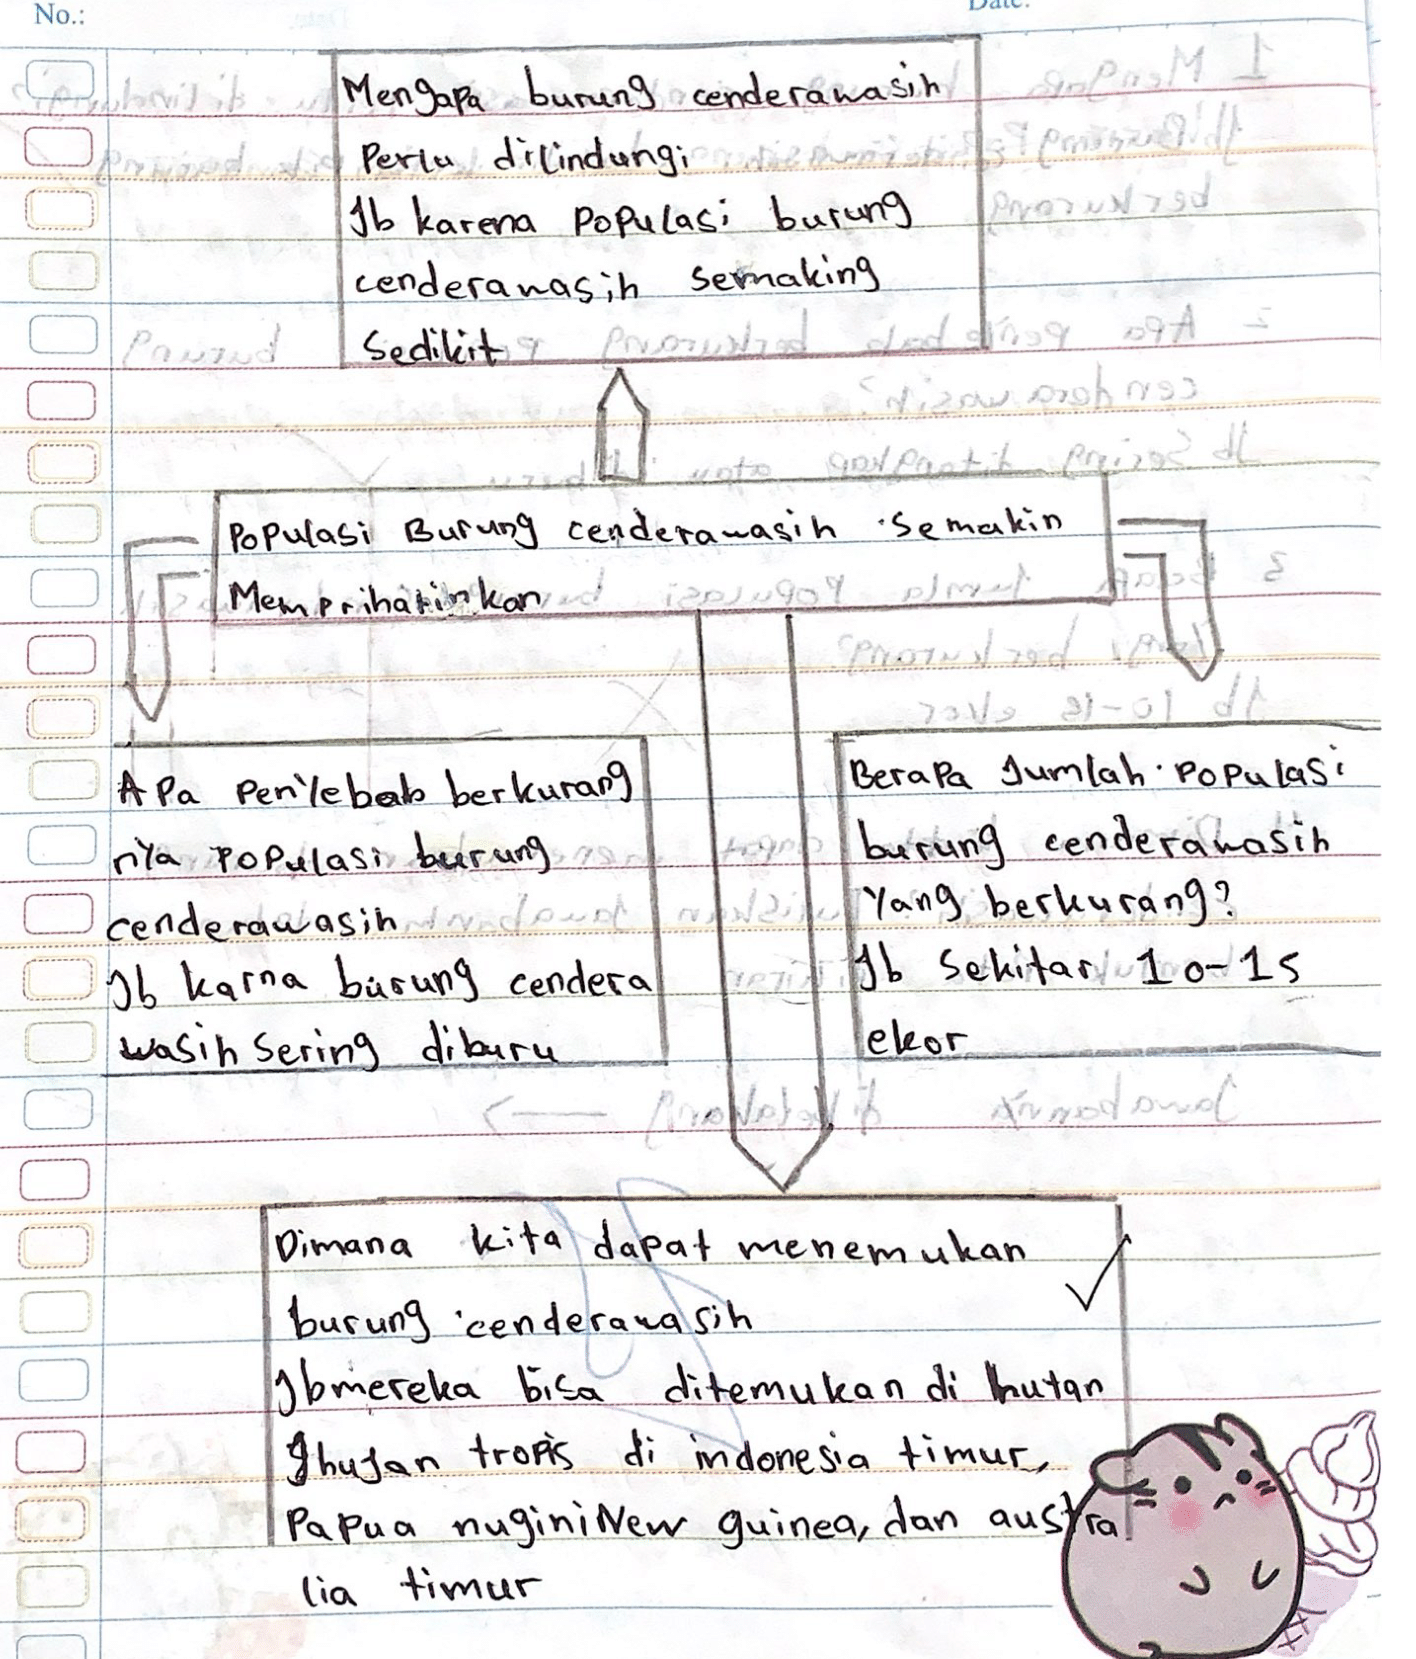 No.:
Date:
Mengapa burung cenderawasih
Perlu dilindungi
Jb karena Populasi burung
cenderawasih semaking
Sedikit
Populasi Burung cenderawasih semakin
Memprihatinkan
Apa Penyebab berkurang
nya populasi burung
cenderawasih
Jb karna burung cendera
wasih sering diburu
Berapa Jumlah Populasi
burung cenderawasih
Yang berkurang?
Jb Sekitar 10-15
ekor
Dimana kita dapat menemukan
burung cenderawasih
Jb mereka bisa ditemukan di hutan
tropis di indonesia timur,
Papua nugini New guinea, dan austra
lia timur